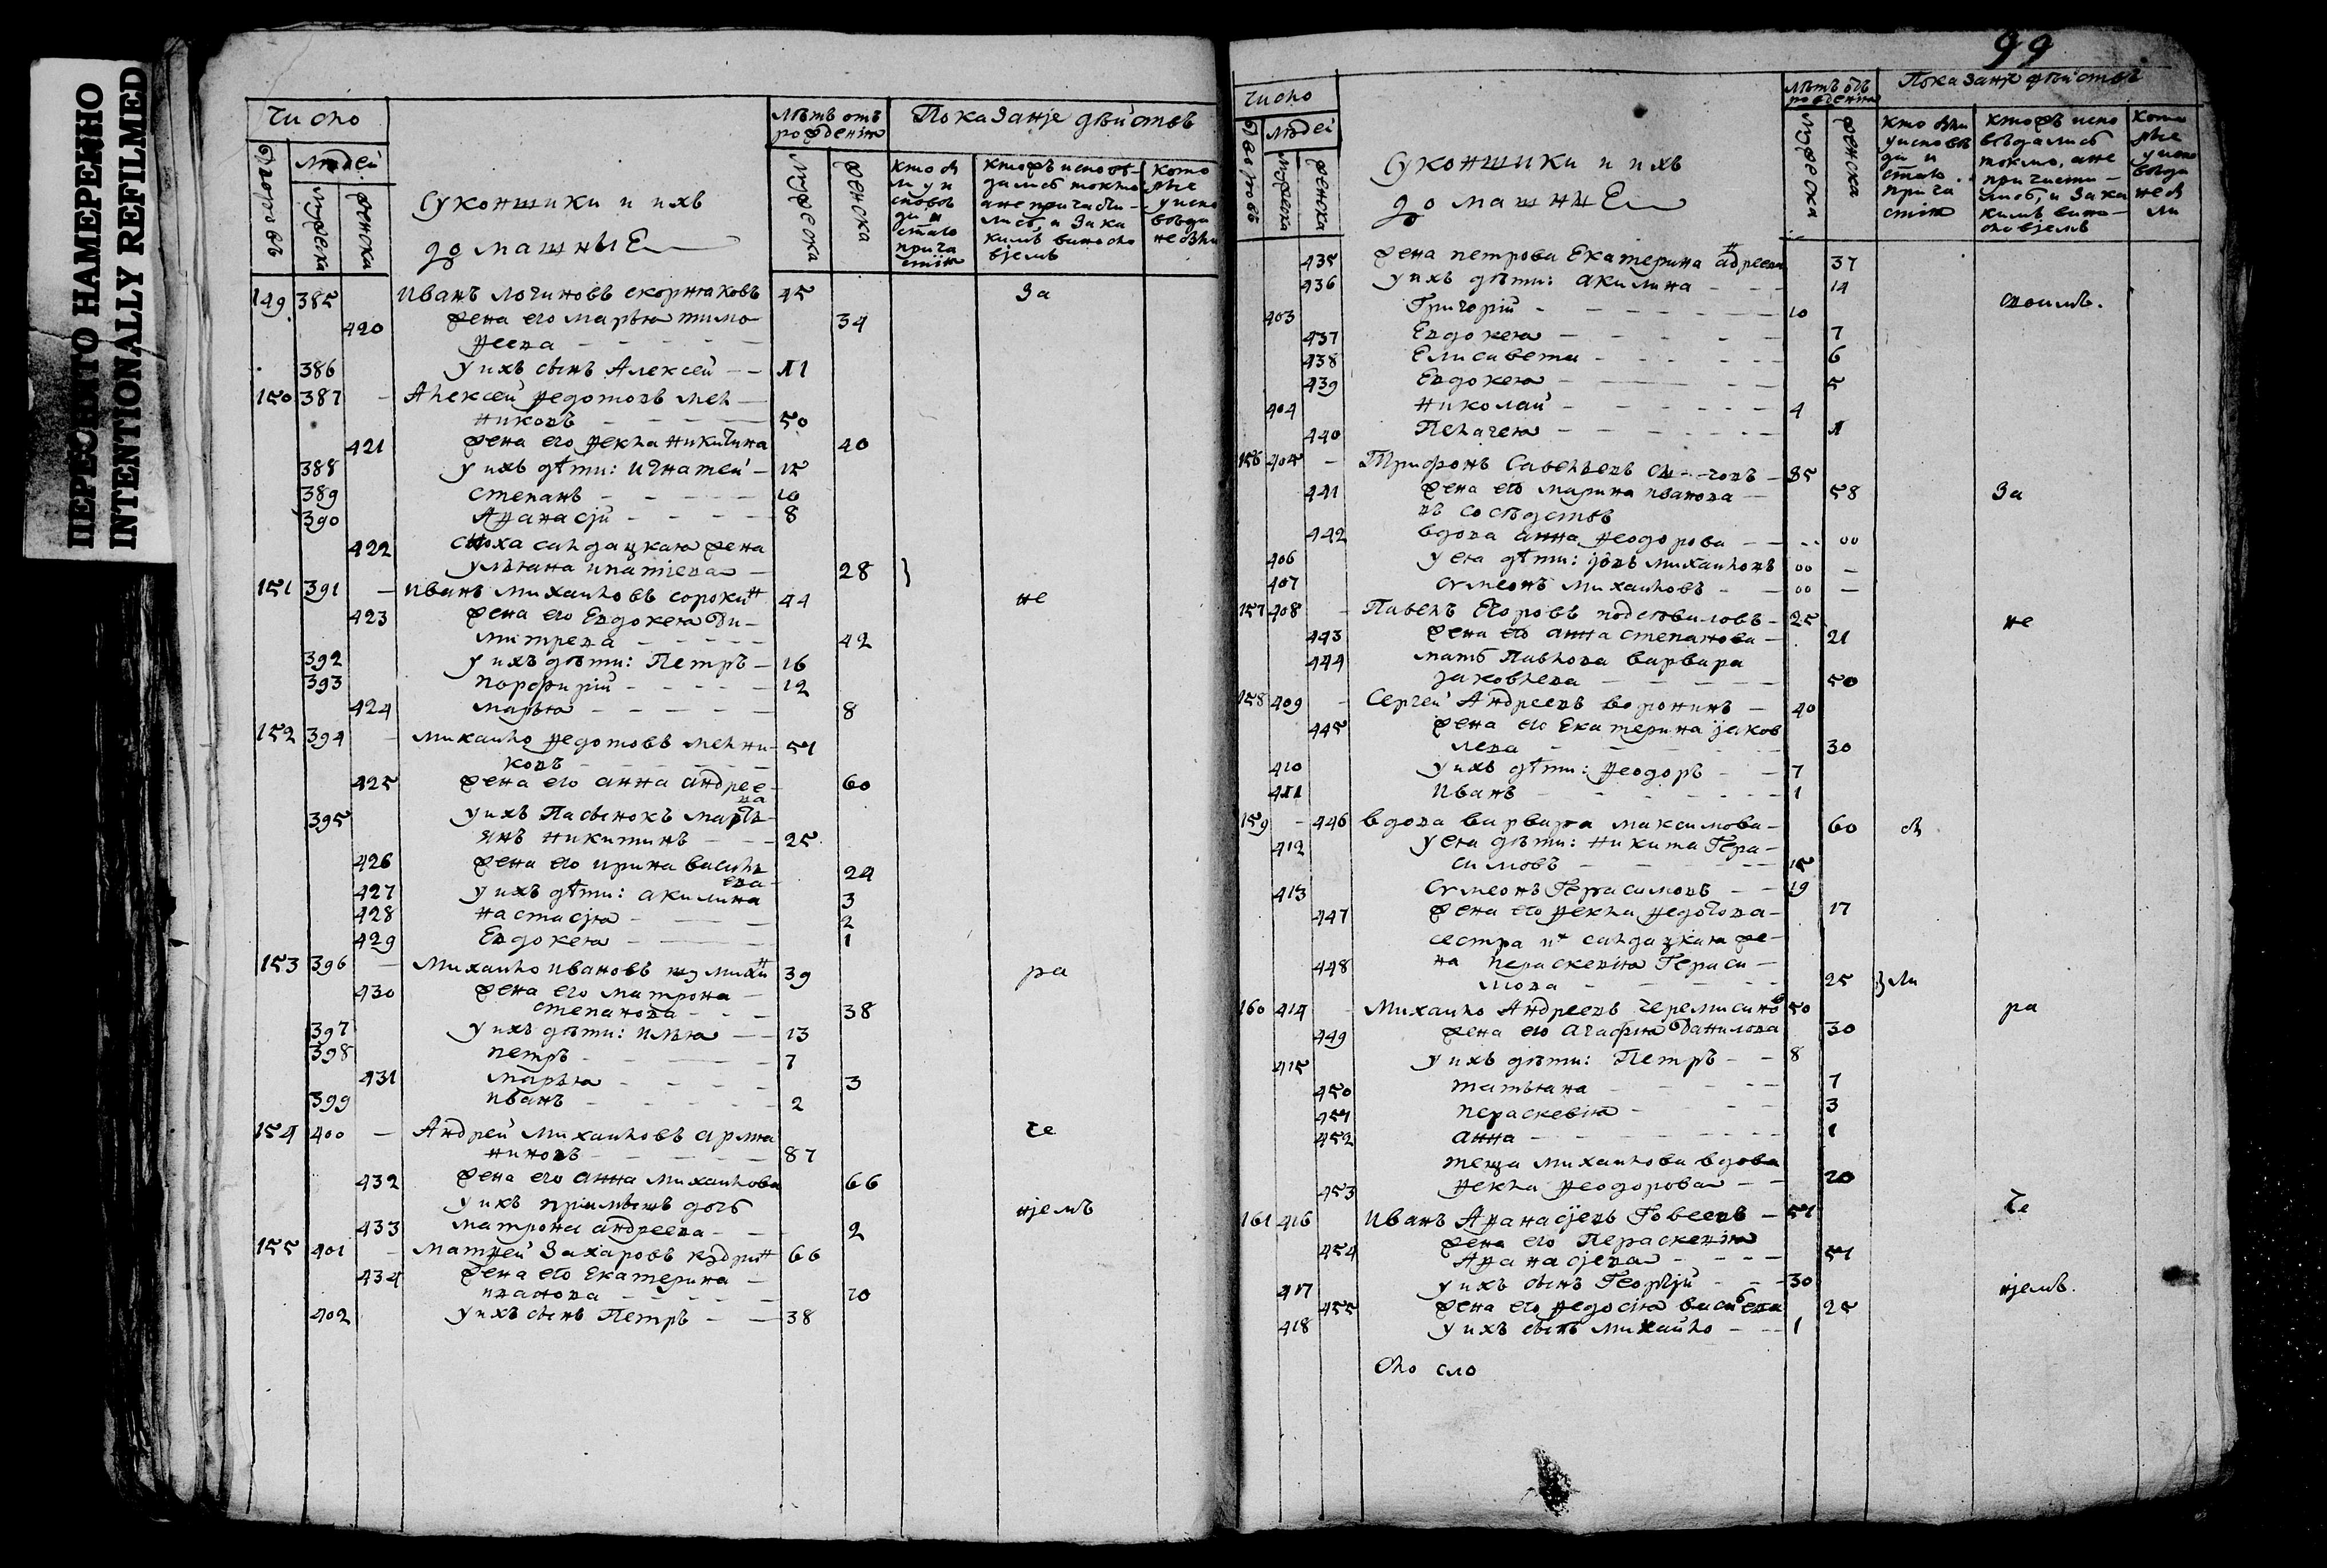 ПЕРЕСНЯТО НАМЕРЕННО
INTENTIONALLY REFILMED
Число
Дворовъ
Людей
Мужеска
Женска
Суконщики и ихъ
домашныЕ
Лѣтъ отъ
рожденія
Мужеска
Женска
Показаніе дѣйствъ
кто бы
ли у и
сповѣ
ди и
с̃таго
прича
стія
кторъ исповѣ-
дались токмо
а не причасти-
лись, и за ка
кимъ виносло
віемъ
Кото
рые
у испо
вѣди
не бы
149 385 Иванъ Логиновъ скорняковъ 45 За
420 жена его Марья тимо- 34
ѳеева
386 у ихъ сынъ Алексей 11
150 387 Алексей ѳедотовъ мел-
никовъ 50
421 жена его ѳекла никитина 40
388 у ихъ дѣти: Игнатей 15
389 степанъ 10
390 Аѳанасій 8
422 сноха салдацкая жена
ульяна ипатіева 28
151 391 Иванъ Михайловъ сорокин 44 не
423 жена его Евдокея Ди-
митрева 42
392 у ихъ дѣти: Петръ 16
393 порфирій 12
424 марья 8
152 394 михайло ѳедотовъ мелни- 51
ковъ
425 жена его анна андрее- 60
ва
395 у ихъ Пасынокъ март-
инъ никитинъ 25
426 жена его ирина васильева 24
427 у ихъ дѣти: акилина 3
428 настасія 2
429 Евдокея 1
153 396 Михайло ивановъ 39 ра
430 жена его матрона
степанова 38
397 у ихъ дѣти: илья 13
398 петръ 7
431 марья 3
399 иванъ 2
154 400 Андрей Михайловъ армя че
ниновъ 87
432 жена его анна михайлова 66
у ихъ пріимышъ дочь ніемъ
433 матрона андреева 2
155 401 Матѳей Захаровъ 66
434 жена его Екатерина
иванова 70
402 у ихъ сынъ Петръ 38
99
Число
Дворовъ
Людей
Мужеска
Женска
Суконщики и ихъ
домашниЕ
Лѣтъ отъ
рожденія
Мужеска
Женска
Показаніе дѣйствъ
кто были
у исповѣ
ди и
с̃таго
прича
стія
кторъ испо
вѣдались
токмо, а не
причасти-
лись, и за ка
кимъ вино-
словіемъ
Кото
рые
у испо
вѣди
не бы
ли
435 жена петрова Екатерина андреева 37
436 у ихъ дѣти: акилина 14
403 Григорій 10 споимъ.
437 Евдокея 7
438 Елисавета 6
439 Евдокея 5
404 николай 4
440 Пелагея 1
156 405 Трифонъ Савельевъ 85
441 жена его марина иванова 58 За
въ сосѣдствѣ
442 вдова анна ѳеодорова 00
406 у ея дѣти: іовъ михайловъ 00
407 сѵмеонъ михайловъ 00
157 408 Павелъ Егоровъ 25 не
443 жена его анна степанова 21
444 мать Павлова варвара
іаковлева 50
158 409 Сергей Андреевъ воронинъ 40
445 жена его Екатерина іаков
лева 30
410 у ихъ дѣти: ѳеодоръ 7
411 иванъ 1
159 446 вдова варвара максимова 60 бы
412 у ея дѣти: никита Гера-
симовъ 15
413 сѵмеонъ Герасимовъ 19
447 жена его ѳекла ѳедотова 17
сестра их салдацкая же-
448 на пераскевія Гераси-
мова 25 ли
160 414 Михайло Андреевъ черемисинов 50 ра
449 жена его агафия Данилова 30
415 у ихъ дѣти: Петръ 8
450 татьяна 7
451 пераскевія 3
452 анна 1
теща михайлова вдова
453 ѳекла ѳеодорова 70
161 416 Иванъ Аѳанасіевъ Говеевъ 51 че
454 жена его Пераскевія
Аѳанасіева 51
417 у ихъ сынъ Георгій 30
455 жена его ѳедосія васильева 25 ніемъ.
418 у ихъ сынъ михайло 1